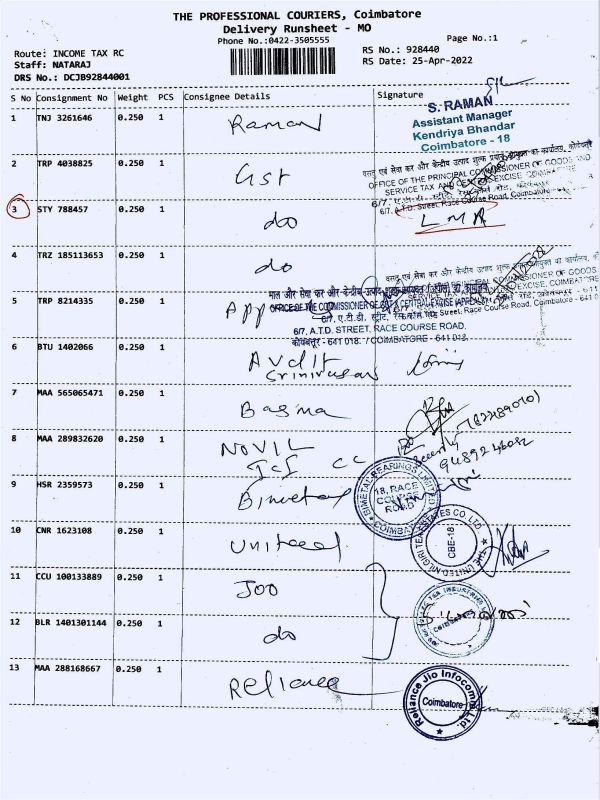 THE PROFESSIONAL COURIERS, Coimbatore
Delivery Runsheet - MO
Phone No.:0422-3505555
Page No.:1
Route: INCOME TAX RC
RS No.: 928440
Staff: NATARAJ
RS Date: 25-Apr-2022
DRS No.: DCJB92844001
S No Consignment No Weight PCS Consignee Details Signature
1 TNJ 3261646 0.250 1 Raman
S. RAMAN
Assistant Manager
Kendriya Bhandar
Coimbatore - 18
2 TRP 4038825 0.250 1 Gst
OFFICE OF THE PRINCIPAL COMMISSIONER OF GOODS AND
SERVICE TAX AND CENTRAL EXCISE, COIMBATORE
6/7, A.T.D. Street, Race Course Road, Coimbatore
3 STY 788457 0.250 1 do
LMA
4 TRZ 185113653 0.250 1 do
5 TRP 8214335 0.250 1 App
माल और सेवा कर और केन्द्रीय उत्पाद शुल्क
OFFICE OF THE COMMISSIONER OF GST & CENTRAL EXCISE (APPEALS)
6/7, ए.टी.डी. स्ट्रीट, रेस कोर्स रोड
6/7, A.T.D. STREET, RACE COURSE ROAD,
कोयंबत्तूर - 641 018. / COIMBATORE - 641 018.
6 BTU 1402066 0.250 1 Audit
Srinivasan
7 MAA 565065471 0.250 1 Basma
8 MAA 289832620 0.250 1 NOVIL
ICI CC
9 HSR 2359573 0.250 1 Bimetal
BIMETAL BEARINGS LIMITED
18, RACE
COURSE
ROAD
COIMBATORE
10 CNR 1623108 0.250 1 United
THE UNITED NILGIRI TEA ESTATES CO. LTD.
CBE-18
11 CCU 100133889 0.250 1 Joo
12 BLR 1401301144 0.250 1 do
13 MAA 288168667 0.250 1 Reliance
Reliance Jio Infocomm Ltd.
Coimbatore